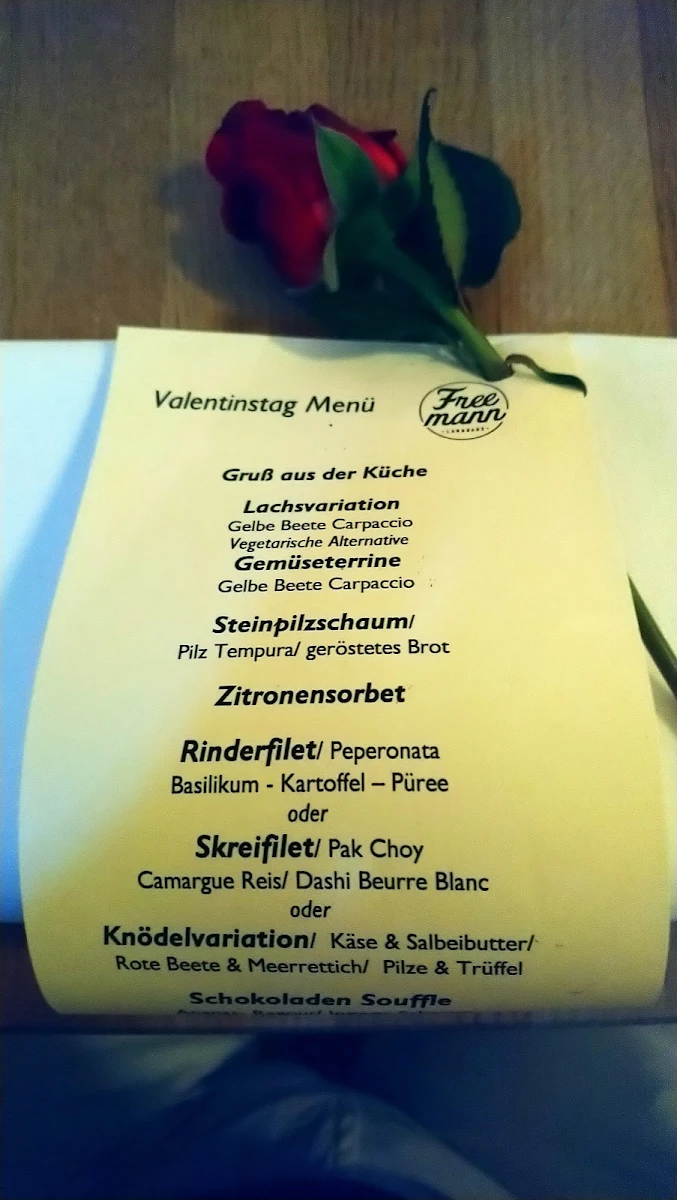 Valentinstag Menü
Free
mann
LANDHAUS
Gruß aus der Küche
Lachsvariation
Gelbe Beete Carpaccio
Vegetarische Alternative
Gemüseterrine
Gelbe Beete Carpaccio
Steinpilzschaum/
Pilz Tempura/ geröstetes Brot
Zitronensorbet
Rinderfilet/ Peperonata
Basilikum - Kartoffel – Püree
oder
Skreifilet/ Pak Choy
Camargue Reis/ Dashi Beurre Blanc
oder
Knödelvariation/ Käse & Salbeibutter/
Rote Beete & Meerrettich/ Pilze & Trüffel
Schokoladen Souffle